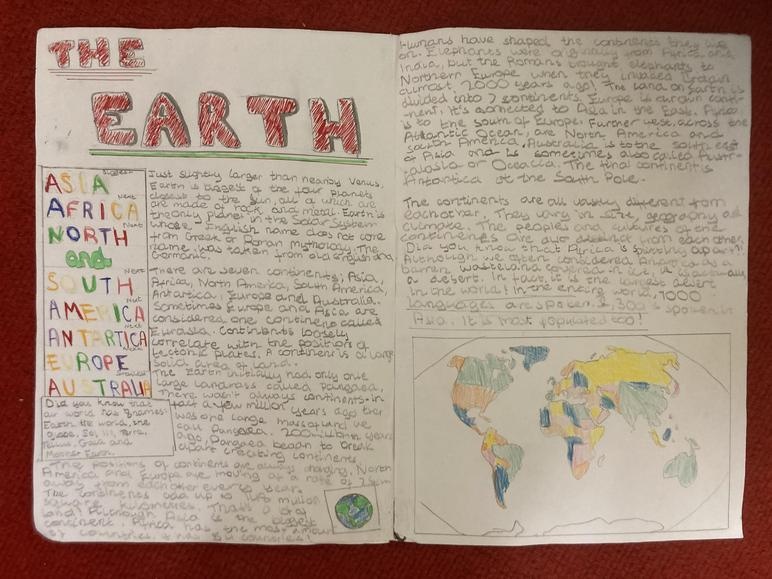 THE
EARTH
ASIA Biggest
AFRICA Next
NORTH Next
and
SOUTH Next
AMERICA Next
ANTARTICA Next
EUROPE
AUSTRALIA Smallest
Did you know that
our world has 9 names:
Earth, the world, the
globe, Sol III, Terra,
Tellus, Gaea and
Mother Earth.
Just slightly larger than nearby Venus,
Earth is biggest of the four planets
closest to the sun, all of which are
are made of rock and metal. Earth is
the only planet in the Solar System
whose English name does not come
from Greek or Roman Mythology. The
name was taken from old English and
Germanic.
There are seven continents; Asia,
Africa, North America, South America,
Antartica, Europe and Australia.
Sometimes Europe and Asia are
considered one continent called
Eurasia. Continents loosely
correlate with the positions of
tectonic plates. A continent is a large
solid area of land.
The Earth initially had only one
large landmass called Pangaea.
There wasn't always continents. In
fact a few million years ago there
was one large mass of land we
call Pangaea. 200 million years
ago, Pangaea began to break
apart creating continents.
The positions of continents are always changing. North
America and Europe are moving at a rate of 2.5cm
away from each other every year.
The continents add up to 148 million
square kilometres. That's a lot of
land! Although Asia is the biggest
continent, Africa has the most amount
of countries, it has 54 countries!
Humans have shaped the continents they live
on. Elephants were originally from Africa and
India, but the Romans brought elephants to
Northern Europe when they invaded Britain
almost 2000 years ago! The land on Earth is
divided into 7 continents. Europe is our own conti-
-nent, it's connected to Asia in the East. Africa
is to the south of Europe. Further west, across the
Atlantic Ocean, are North America and
South America, Australia is to the south east
of Asia and is sometimes also called Austr-
-alasia or Oceania. The final continent is
Antartica at the South Pole.
The continents are all vastly different from
eachother. They vary in size, geography and
climate. The peoples and cultures of the
continents are also distinct from each other.
Did you know that Africa is splitting apart?!
Although we often considered Antartica as a
barren wasteland covered in ice, it is actually
a desert. In fact, it is the largest desert
in the world! In the entire world, 7000
languages are spoken, 2,300 is spoken in
Asia. It is most populated too!